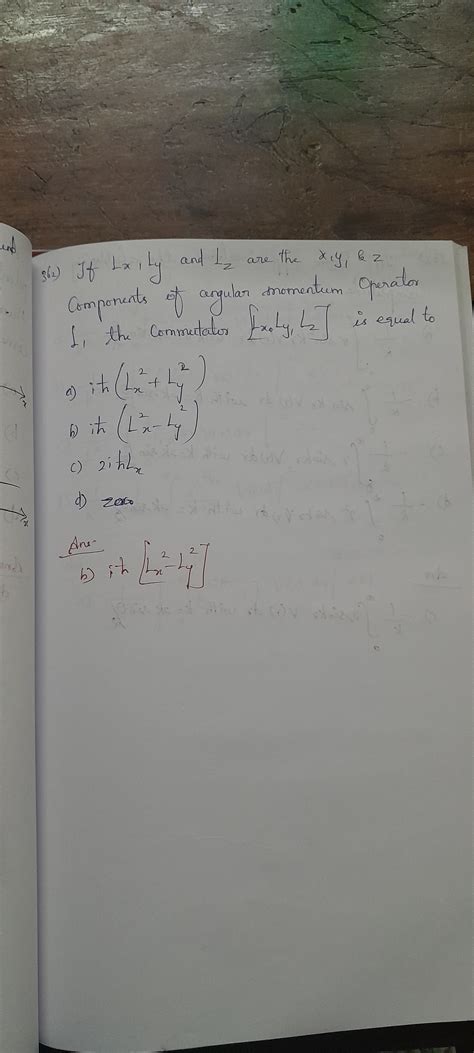 36.) If Lx, Ly and Lz are the x, y, & z
Components of angular momentum Operator
L, the Commutator [Lx, Ly, Lz] is equal to
a) iħ (Lx² + Ly²)
b) iħ (Lx² - Ly²)
c) 2iħLx
d) zero
Ans:-
b) iħ [Lx² - Ly²]